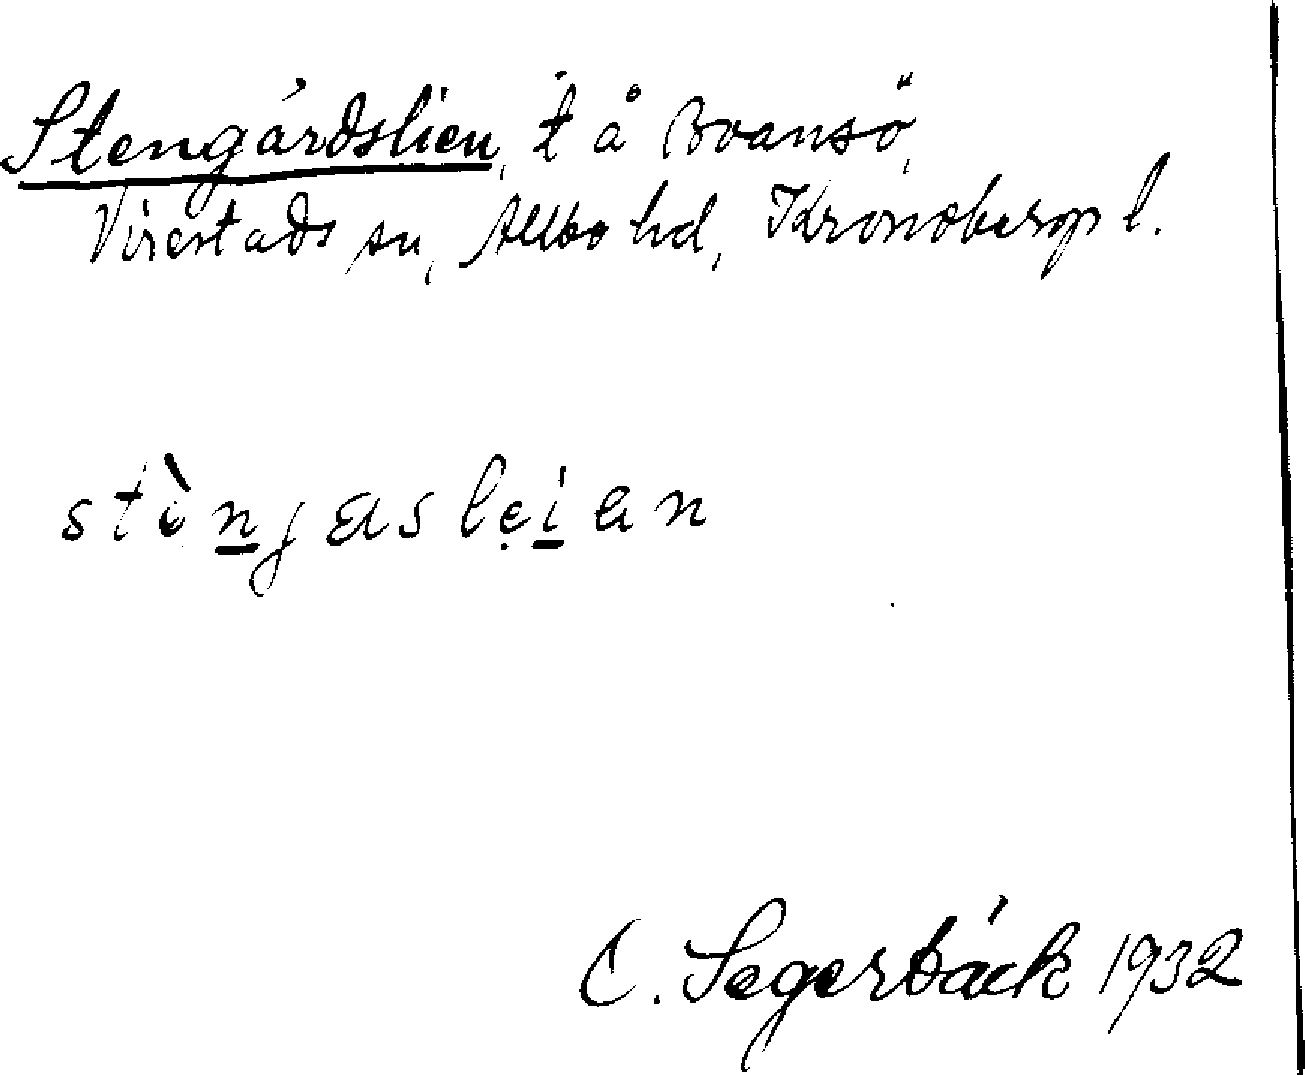 Stengårdslien, t å Boansö,
Virestads sn, Allbo hd, Kronobergs l.
stìnjasleian
C. Segerbäck 1932